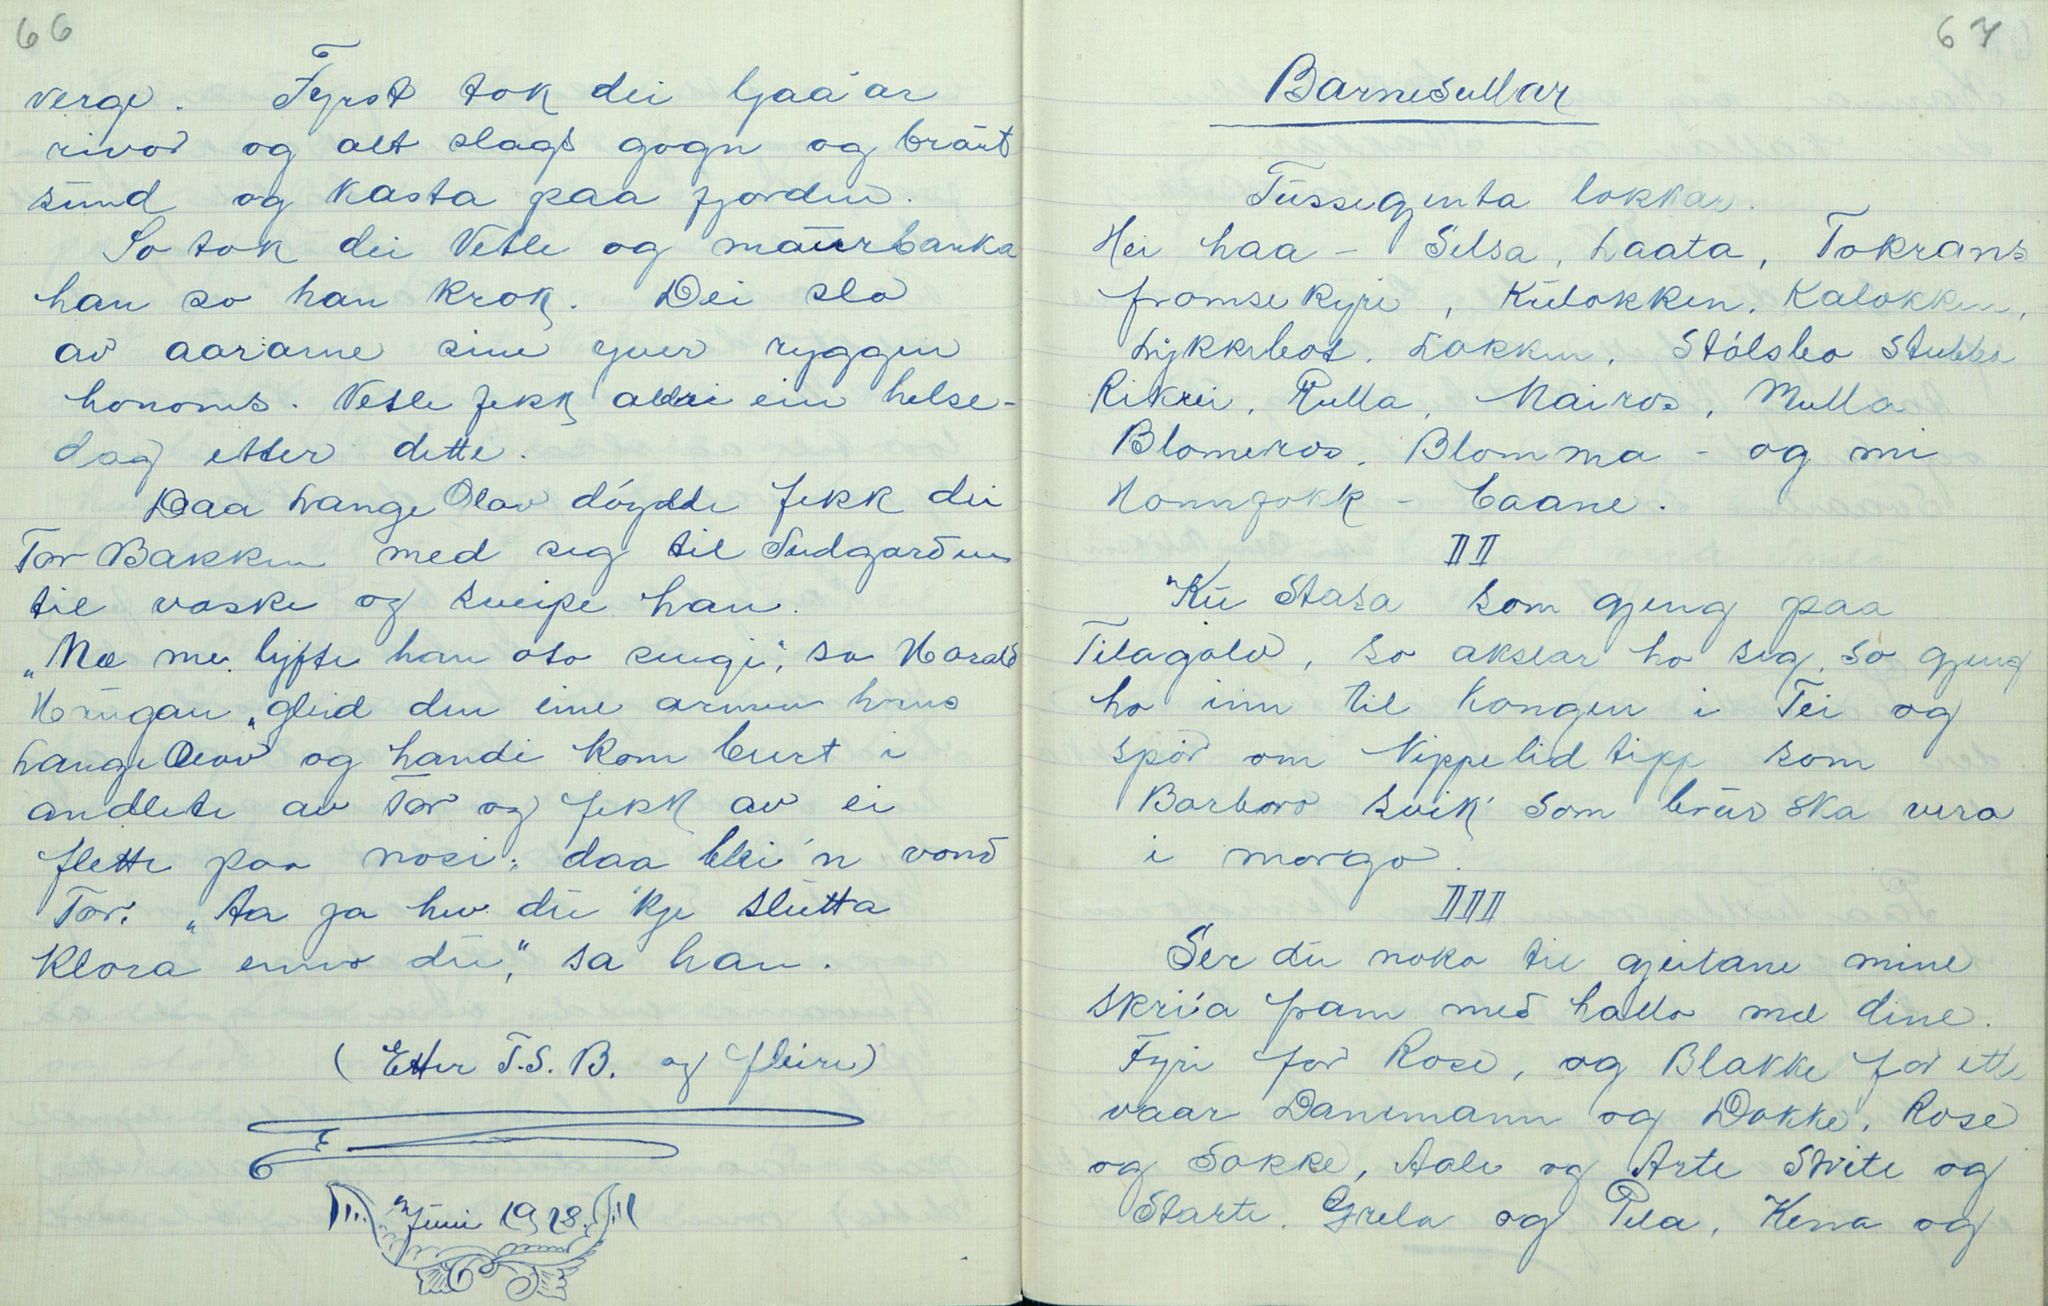 66
verge. Fyrst tok dei ljaa'ar
rivor og alt slags gogn og braut
sund og kasta paa fjorden.
So tok dei Vetle og maurbanka
han so han krok. Dei slo
av aararne sine yver ryggen
honoms. Vetle fekk aldri ein helse-
dag etter dette.
Daa Lange Olav döydde fekk dei
Tor Bakken med seg til Sudgarden
til vaske og sveipe han.
"Næ me lyfte han oto sengi", sa Harald
"gleid den eine armen hans
Lange Olav og handi kom burt i
andlete av Tor og fekk av ei
flette paa nosi; daa blei'n vond
Tor: "Aa ja hev du 'kje slutta
klora enno du", sa han.
(Etter T.S.B. og fleire)
Juni 1928.
67
Barnesullar
Tussegjenta lokkar.
Hei haa - Selsa, Laata, Tokrans
fromsekyri, Kulokken, Kalokken,
Lykkebot, Lokken, Stólsbo Stubbo
Rikrei, Rulla, Mairos, Mulla
Blomeros, Blomma - og mi
Honnfokk - baane.
II
"Ku Stasa som gjeng paa
Tilagolv, so akslar ho seg, so gjeng
ho inn til kongen i Tei og
spör om Nippelid tipp som
Barboro svik som brur ska vera
i morgo.
III
Ser du noko til gjeitane mine
skri'a fram med hallo mæ dine.
Fyri for Rose, og Blakke for ette
vaar Danemann og Dokke, Rose
og Sokke, Aale og Arte Svite og
Starte. Grela og Pila, Kena og